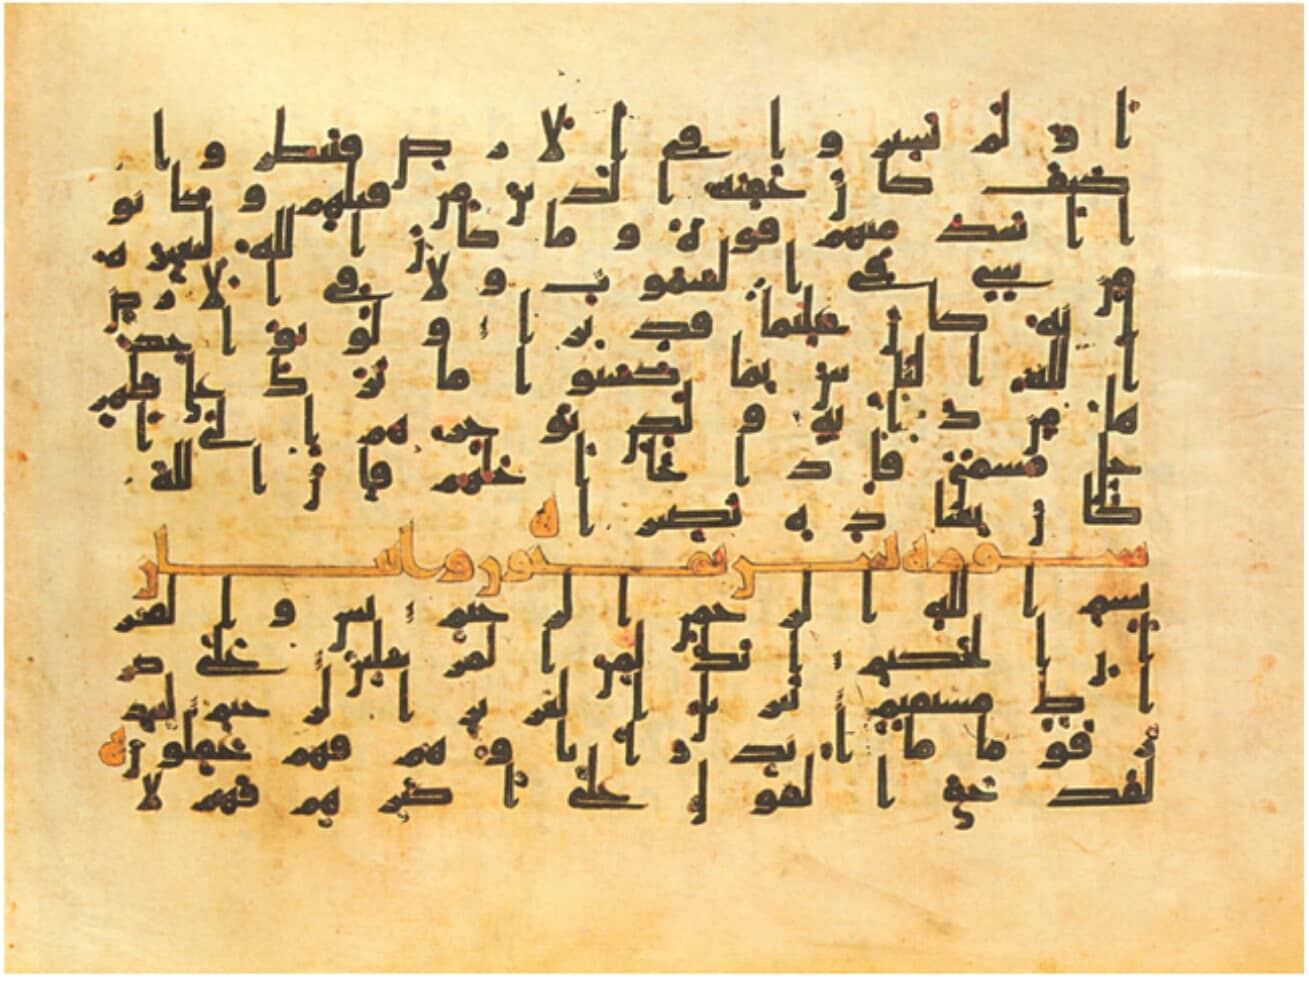 او لم يسيروا في الارض فينظروا
كيف كان عقبه الذين من قبلهم وكانوا
ا اشد منهم قوة وما كان الله ليعجزه
من شي في السموت ولا في الارض
انه كان عليما قديرا ولو يواخذ
الله الناس بما كسبوا ما ترك على ظهر
ها من دابة ولكن يوخرهم الى ا
جل مسمى فاذا جا اجلهم فان الله
كان بعباده بصيرا
سوره يس
بسم الله الرحمن الرحيم يس والقر
ان الحكيم انك لمن المرسلين على صر
اط مستقيم تنزيل العزيز الرحيم لتنذ
ر قوما ما انذر اباوهم فهم غفلون
لقد حق القول على اكثرهم فهم لا